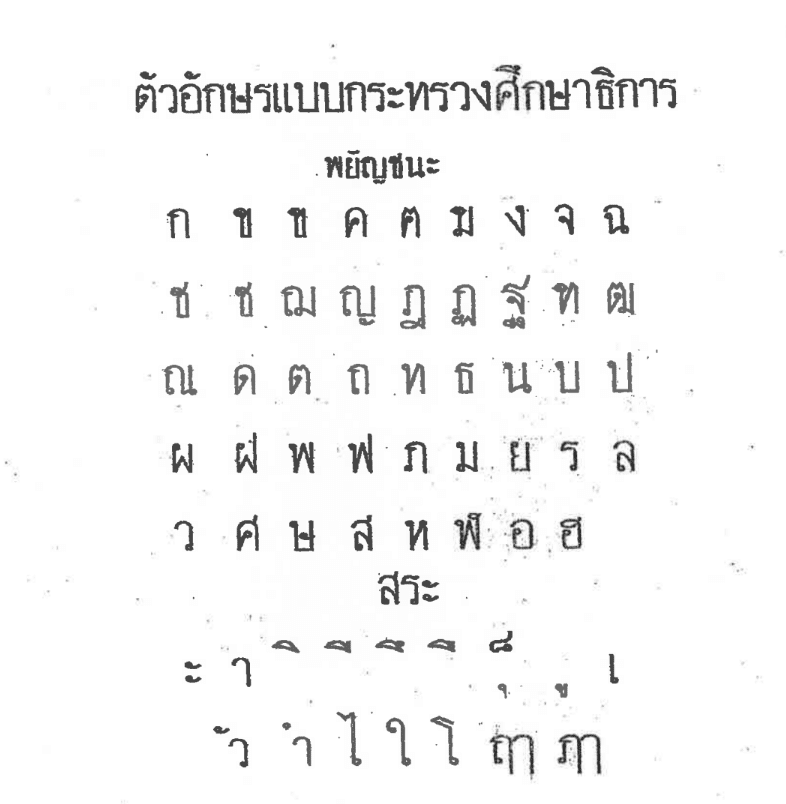 ตัวอักษรแบบกระทรวงศึกษาธิการ
พยัญชนะ
ก ข ฃ ค ฅ ฆ ง จ ฉ
ช ซ ฌ ญ ฎ ฏ ฐ ฑ ฒ
ณ ด ต ถ ท ธ น บ ป
ผ ฝ พ ฟ ภ ม ย ร ล
ว ศ ษ ส ห ฬ อ ฮ
สระ
ะ า ิ ี ึ ื ็ ุ ู เ
ัว ำ ไ ใ โ ฤๅ ฦๅ